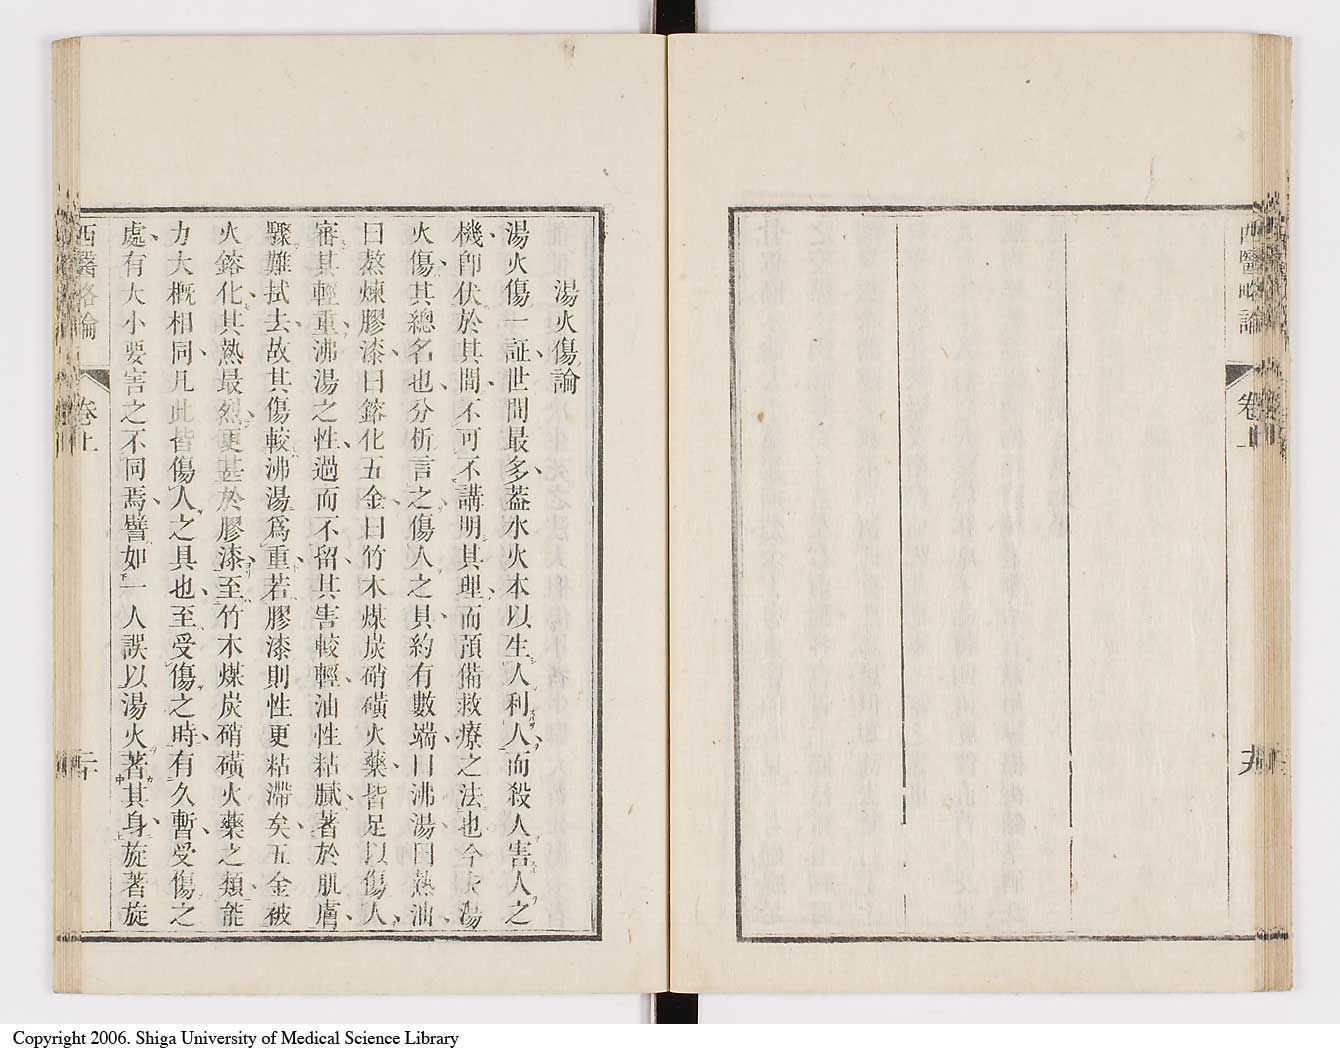 西醫畧論
卷上
九
湯火傷論
湯火傷一証世間最多葢水火本以生人利人而殺人害人之
機卽伏於其間不可不講明其理而預備救療之法也今夫湯
火傷其總名也分析言之傷人之具約有數端曰沸湯曰熱油
曰熬煉膠漆曰鎔化五金曰竹木煤炭硝磺火藥皆足以傷人
審其輕重沸湯之性過而不留其害較輕油性粘膩著於肌膚
驟難拭去故其傷較沸湯爲重若膠漆則性更粘滯矣五金被
火鎔化其熱最烈更甚於膠漆至竹木煤炭硝磺火藥之類能
力大概相同凡此皆傷人之具也至受傷之時有久暫受傷之
處有大小要害之不同焉譬如一人誤以湯火著其身旋著旋
西醫畧論
卷上
二十
Copyright 2006. Shiga University of Medical Science Library